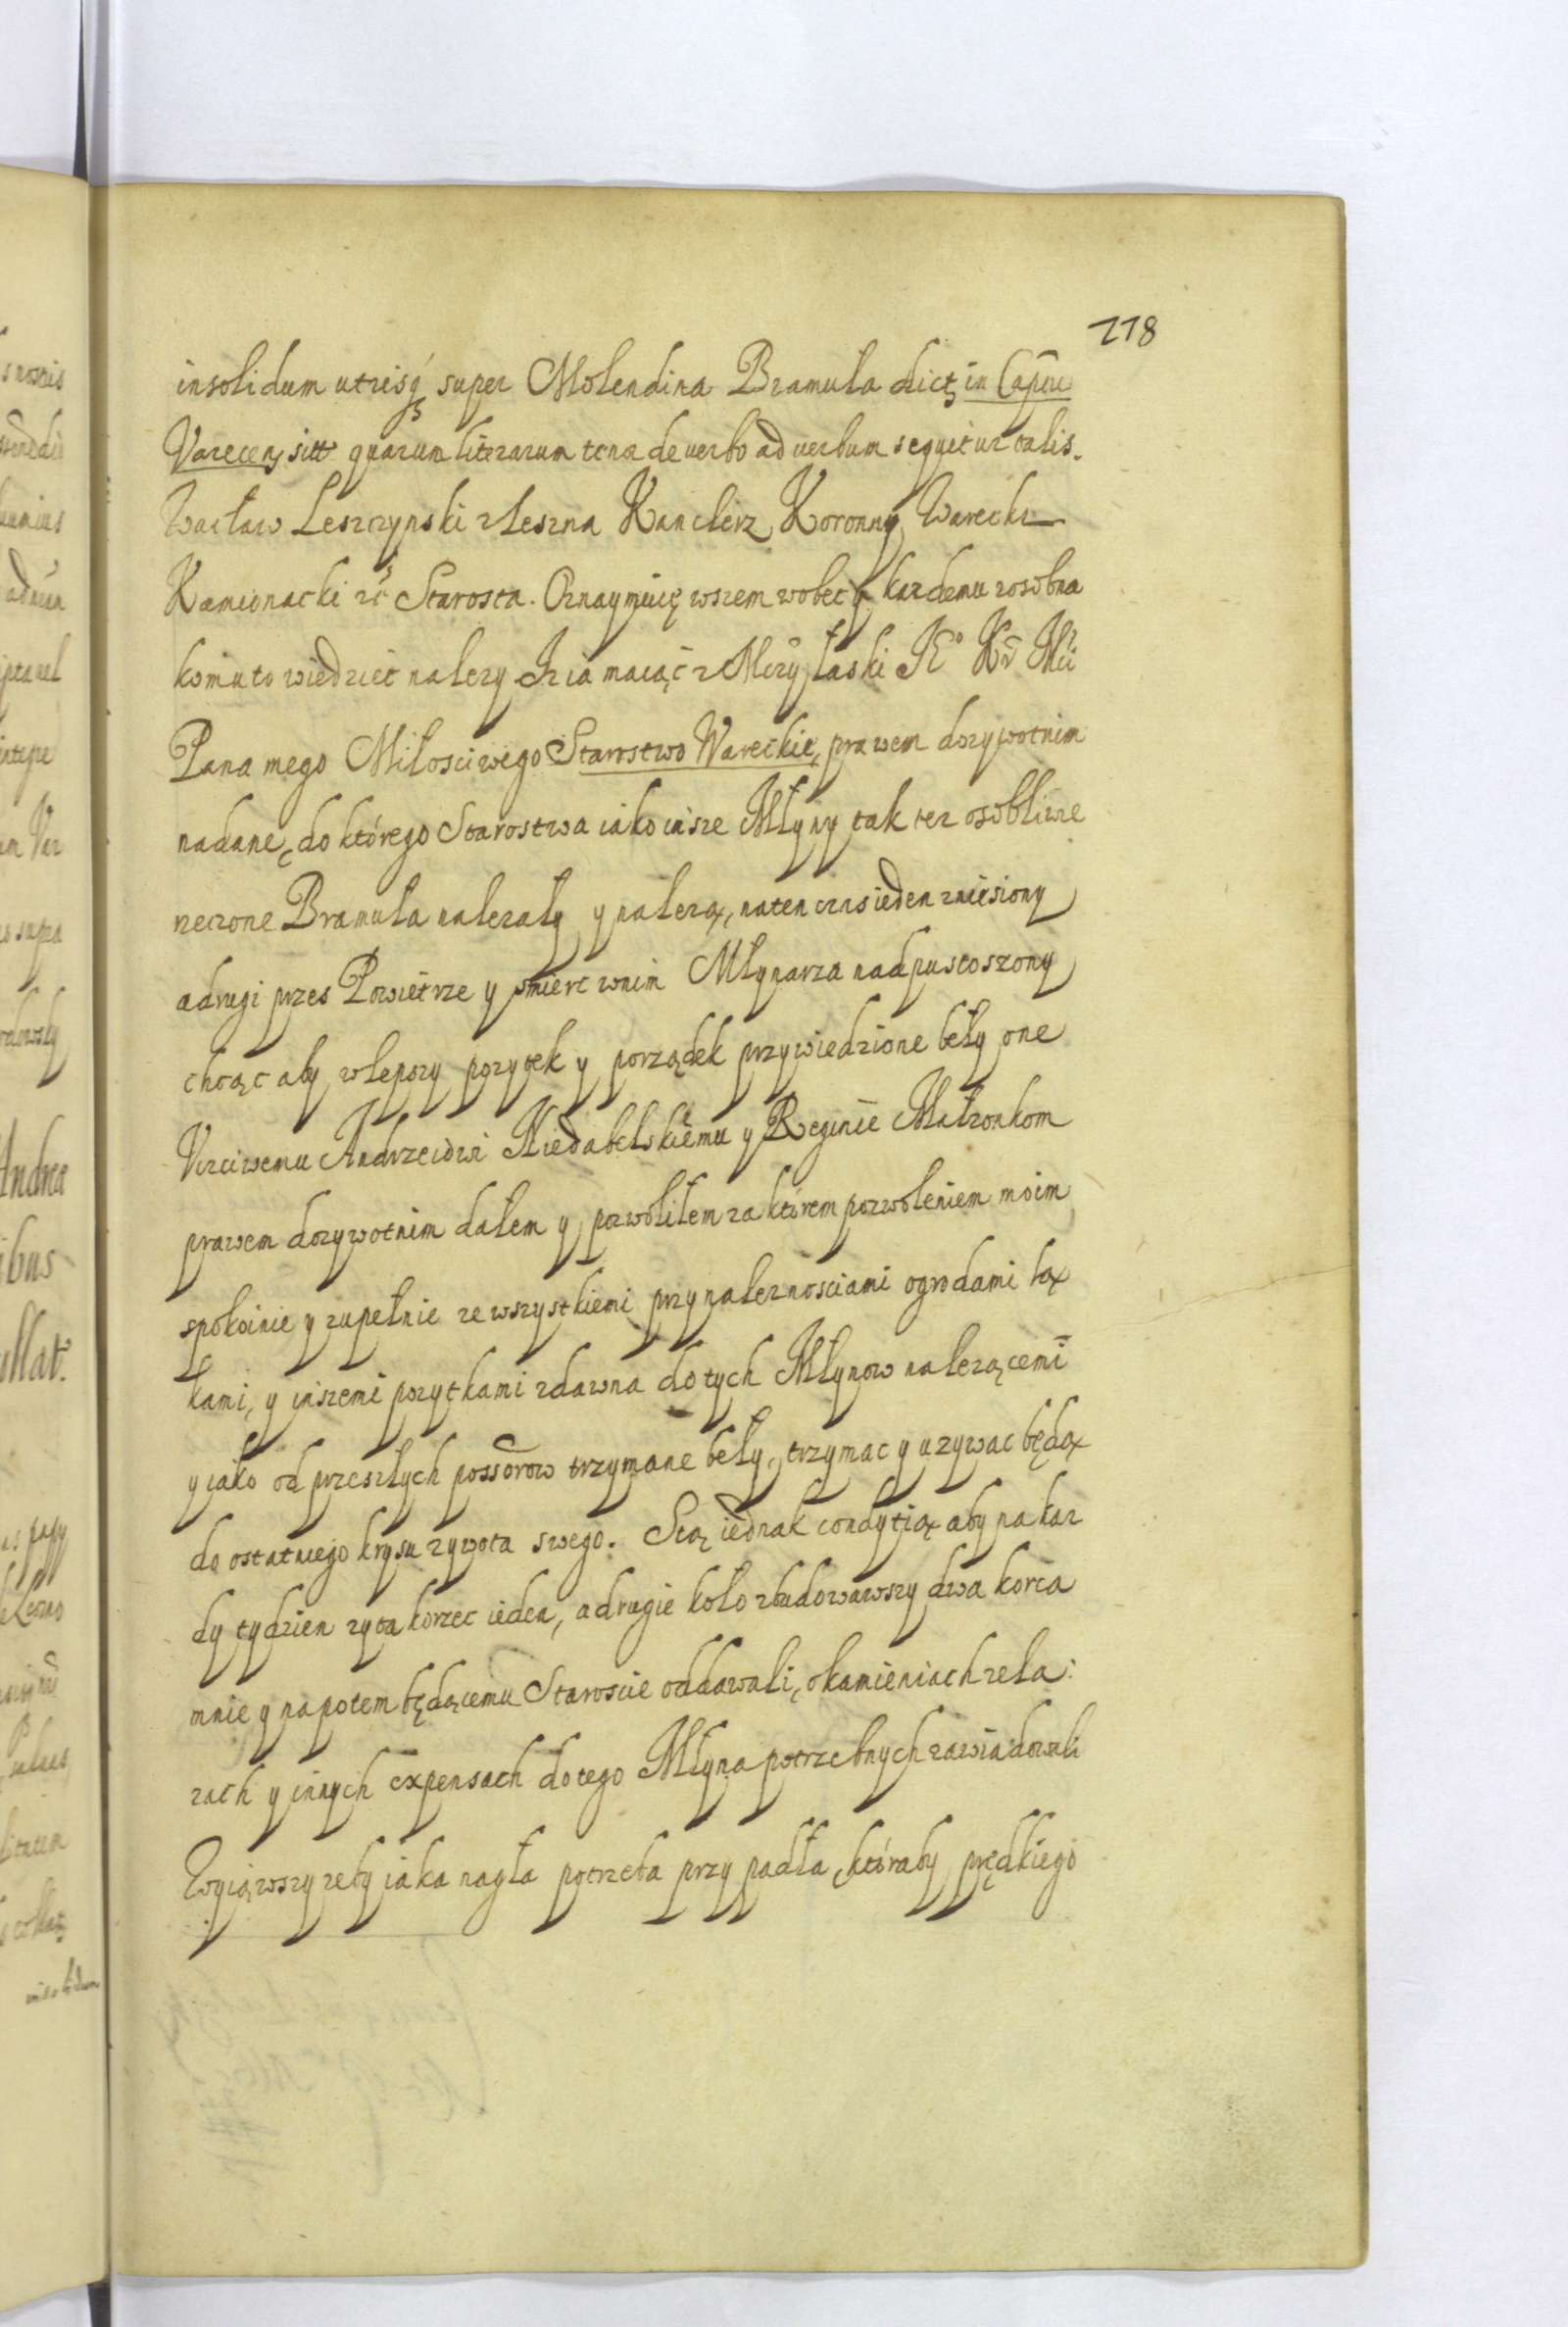 118
insolidum utrisq super Molendina Bramuła dict in Captu
Varecen sitt quarum literarum tenor de verbo ad verbum sequitur talis.
Wacław Leszczynski z Leszna Kanclerz Koronny Warecki
Kamionacki etc Starosta. Oznaymuię wszem wobec y kazdemu zosobna
komu to wiedziec nalezy Iz ia maiąc z Mczy łaski Kº KrB Mci
Pana mego Miłosciwego Starostwo Wareckie, prawem dozywotnim
nadane, do którego Starostwa iako insze Młyny tak tez osobliwe
rzeczone Bramuła nalezały y nalezą, na ten czas ieden zniesiony
a drugi przes Powietrze y smierc w nim Młynarza nadpustoszony
chcąc aby w lepszy pozytek y porządek przywiedzione beły one
Vczciwemu Andrzeiowi Niedabelskiemu y Reginie Małzonkom
prawem dozywotnim dałem y pozwoliłem za którem pozwoleniem moim
spokoinie y zupełnie ze wszystkiemi przynaleznosciami ogrodami łą
kami, y inszemi pozytkami zdawna do tych Młynow nalezącemi
y iako od przeszłych possorow trzymane beły, trzymac y uzywac będą
do ostatniego kresu zywota swego. Stą iednak condytią aby na kaz
dy tydzien zyta korzec ieden, a drugie koło zbudowawszy dwa korca
mnie y napotem będącemu Staroscie oddawali, o kamieniach zela:
zach y innych expensach do tego Młyna potrzebnych zawiadowali
Wyiąwszy zeby iaka nagła potrzeba przypadła, któraby prędkiego